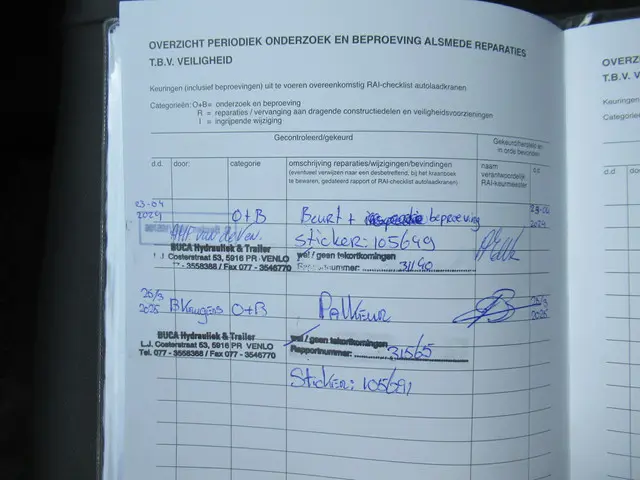 OVERZICHT PERIODIEK ONDERZOEK EN BEPROEVING ALSMEDE REPARATIES
T.B.V. VEILIGHEID
Keuringen (inclusief beproevingen) uit te voeren overeenkomstig RAI-checklist autolaadkranen
Categorieën: O+B= onderzoek en beproeving
R = reparaties / vervanging aan dragende constructiedelen en veiligheidsvoorzieningen
I = ingrijpende wijziging
Gecontroleerd/gekeurd
Gekeurd/hersteld en in orde bevonden
d.d. door: categorie omschrijving reparaties/wijzigingen/bevindingen
(eventueel verwijzen naar een desbetreffend, bij het kraanboek
te bewaren, gedateerd rapport of RAI-checklist autolaadkranen)
naam
verantwoordelijk
RAI-keurmeester
d.d.
23-04
2024 O+B Beurt + beproeving
2024
sticker: 105649
BUCA Hydrauliek & Trailer
L.J. Costerstraat 53, 5916 PR VENLO
- 3558388 / Fax 077 - 3546770
wel / geen tekortkomingen
31140
25/3
2025 O+B Palkeur 25/3
2025
BUCA Hydrauliek & Trailer
L.J. Costerstraat 53, 5916 PR VENLO
Tel. 077 - 3558388 / Fax 077 - 3546770
wel / geen tekortkomingen
Rapportnummer: 31565
Sticker: 105691
OVERZ
T.B.V. V
Keuringen
Categorie
d.d.